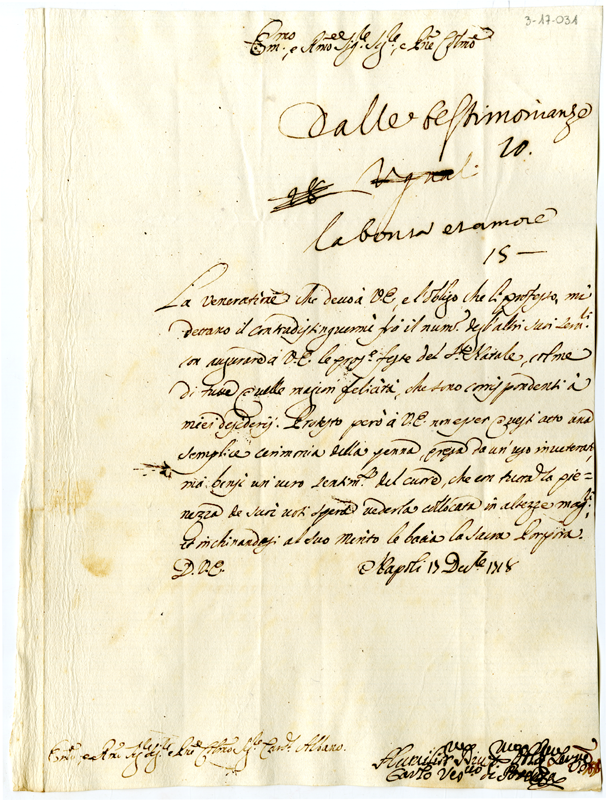 3-17-031
Em.mo e R.mo Sig.re Sig.re e P.ne Col.mo
Dalle testimonianze
20.
la bontà et amore
15 —
La veneratione che devo à V.E., e l'obligo che li professo, mi
devono il contradistinguermi frà il num.o degl'altri suoi
con augurare à V.E. le pross.e feste del S.to Natale, colme
di tutte quelle maggiori felicità, che sono corrispondenti à
miei desiderij. Protesto però à V.E. non esser quest'atto una
semplice cerimonia della penna, presa da un'uso inveterat
mà bensì un vero sentim.to del cuore, che con tutta la pie=
nezza de suoi voti spera vederla collocata in altezze magg.ri
Et inchinandosi al suo merito le bacia la Sacra Porpora.
D.V.E. Napoli 17 Dec.bre 1718
Em.mo e R.mo Sig.re Sig.re e P.ne Col.mo Sig.re Card. Albano.
Humiliss.mo Div.mo Ser.re
Carlo Vescovo di